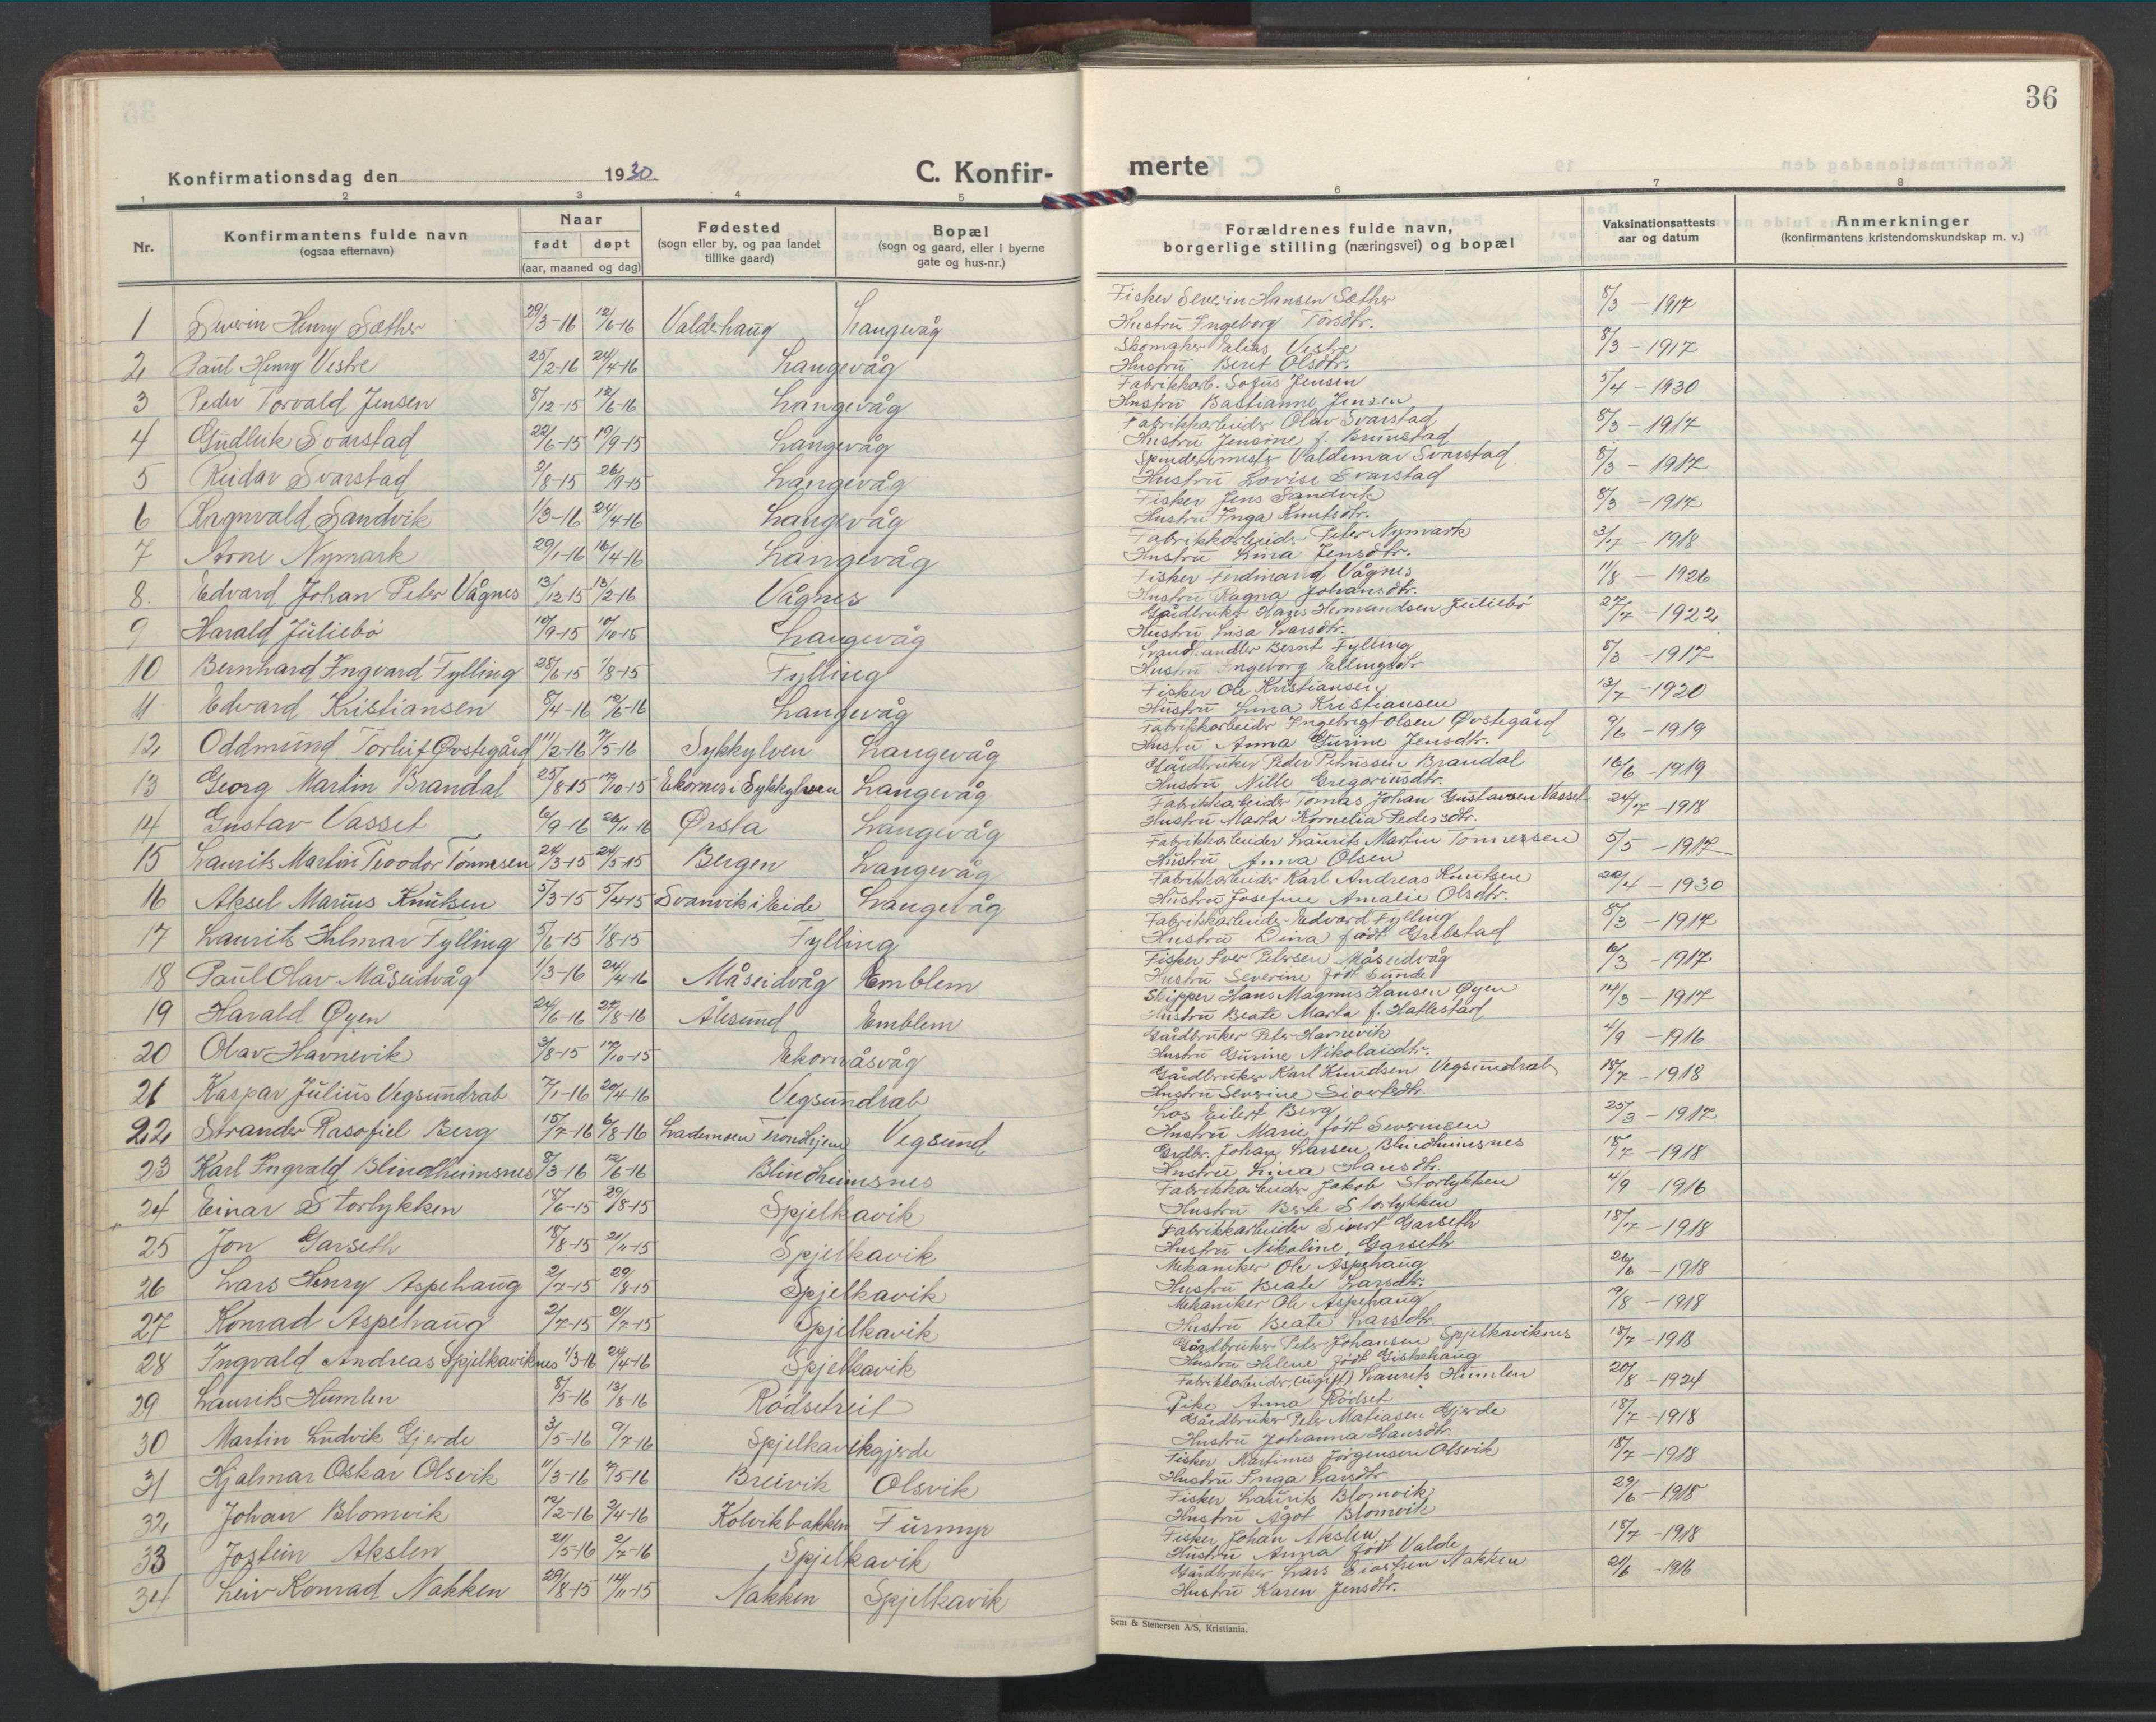 36
Konfirmationsdag den 1930.
C. Konfir-merte
1 2 3 4 5 6 7 8
Nr. Konfirmantens fulde navn (ogsaa efternavn) Naar født døpt (aar, maaned og dag) Fødested (sogn eller by, og paa landet tillike gaard) Bopæl (sogn og gaard, eller i byerne gate og hus-nr.) Forældrenes fulde navn, borgerlige stilling (næringsvei) og bopæl Vaksinationsattests aar og datum Anmerkninger (konfirmantens kristendomskundskap m. v.)
1 Severin Henry Sæther 29/3-16 12/6-16 Valderhaug Langevåg Fisker Severin Hansen Sæther 8/3 - 1917
Hustru Ingeborg Torsdtr.
2 Paul Henry Vestre 25/2-16 24/4-16 Langevåg Skomaker Elias Vestre 8/3 - 1917
Hustru Berit Olsdtr.
3 Peder Torvald Jensen 8/12-15 12/6-16 Langevåg Fabrikkarb. Sofus Jensen 5/4 - 1930
Hustru Bastianne Jensen
4 Gudleik Svarstad 22/6-15 19/9-15 Langevåg Fabrikkarbeider Olav Svarstad 8/3 - 1917
Hustru Jensine f. Brunstad
5 Reidar Svarstad 2/8-15 26/9-15 Langevåg Spinderimester Valdemar Svarstad 8/3 - 1917
Hustru Lovise Svarstad
6 Ragnvald Sandvik 1/3-16 24/4-16 Langevåg Fisker Jens Sandvik 8/3 - 1917
Hustru Inga Knutsdtr.
7 Arne Nymark 29/1-16 16/4-16 Langevåg Fabrikkarbeider Peter Nymark 3/7 - 1918
Hustru Lina Jensdtr.
8. Edvard Johan Peter Vågnes 13/12-15 13/2-16 Vågnes Fisker Ferdinand Vågnes 11/8 - 1926
Hustru Ragna Johansdtr.
9 Harald Juliebø 10/9-15 10/10-15 Langevåg Gårdbruker Hans Hermandsen Juliebø 27/7 - 1922
Hustru Lisa Larsdtr.
10 Bernhard Ingvard Fylling 28/6-15 1/8-15 Fylling Landhandler Bernt Fylling 8/3 - 1917
Hustru Ingeborg Ellingsdtr
11 Edvard Kristiansen 8/4-16 12/6-16 Langevåg Fisker Ole Kristiansen 13/7 - 1920
Hustru Lina Kristiansen
12 Oddmund Torleif Øvstegård 11/2-16 7/5-16 Sykkylven Langevåg Fabrikkarbeider Ingebrigt Olsen Øvstegård 9/6 - 1919
Hustru Anna Gurine Jensdtr.
13 Georg Martin Brandal 25/8-15 17/10-15 Ekornes i Sykkylven Langevåg Gårdbruker Peder Petrussen Brandal 16/6 - 1919
Hustru Nille Gregoriusdtr.
14 Gustav Vasset 6/9-16 26/11-16 Ørsta Langevåg Fabrikkarbeider Tomas Johan Gustavsen Vasset 24/7 - 1918
Hustru Marta Kornelia Pedersdtr.
15 Laurits Martin Teodor Tønnesen 24/3-15 24/5-15 Bergen Langevåg Fabrikkarbeider Laurits Martin Tønnesen 5/5 - 1917
Hustru Anna Olsen
16 Aksel Marius Knutsen 5/3-15 5/4-15 Svanvik i Eide Langevåg Fabrikkarbeider Karl Andreas Knutsen 20/4 - 1930
Hustru Josefine Amalie Olsdtr.
17 Laurits Hilmar Fylling 5/6-15 1/8-15 Fylling Fabrikkarbeider Edvard Fylling 8/3 - 1917
Hustru Dina født Grebstad
18 Paul Olav Måseidvåg 1/3-16 24/4-16 Måseidvåg Emblem Fisker Iver Petersen Måseidvåg 6/3 - 1917
Hustru Severine født Sunde
19 Harald Øyen 24/6-16 27/8-16 Ålesund Emblem Skipper Hans Magnus Hansen Øyen 14/3 - 1917
Hustru Beate Marta f. Hatlestad
20 Olav Havnevik 3/8-15 17/10-15 Ekornåsvåg Gårdbruker Peter Havnevik 4/9 - 1916
Hustru Gurine Nikolaisdtr.
21 Kaspar Julius Vegsundrab 7/1-16 20/4-16 Vegsundrab Gårdbruker Karl Knudsen Vegsundrab 18/7 - 1918
Hustru Severine Sivertsdtr.
22 Strander Rasofiel Berg 15/7-16 6/8-16 Lademoen Trondhjem Vegsund Los Eilert Berg 25/3 - 1917
Hustru Marie født Severinsen
23 Karl Ingvald Blindheimsnes 8/3-16 12/6-16 Blindheimsnes Grdbr. Johan Larsen Blindheimsnes 18/7 - 1918
Hustru Lina Hansdtr.
24 Einar Storlykken 18/6-15 29/8-15 Spjelkavik Fabrikkarbeider Jakob Storlykken 4/9 - 1916
Hustru Berte Storlykken
25 Jon Garseth 18/8-15 21/11-15 Spjelkavik Fabrikkarbeider Sivert Garseth 18/7 - 1918
Hustru Nikoline Garseth
26 Lars Henry Aspehaug 2/7-15 29/8-15 Spjelkavik Mekaniker Ole Aspehaug 26/6 - 1918
Hustru Beate Larsdtr.
27 Konrad Aspehaug 2/7-15 21/7-15 Spjelkavik Mekaniker Ole Aspehaug 19/8 - 1918
Hustru Beate Larsdtr
28 Ingvald Andreas Spjelkaviknes 1/3-16 24/4-16 Spjelkavik Gårdbruker Peter Johansen Spjelkaviknes 18/7 - 1918
Hustru Helene født Giskehaug
29 Laurits Humlen 8/5-16 13/8-16 Rødsetreit Fabrikkarbeider, (ugift) Laurits Humlen 20/8 - 1924
Pike Anna Rødset
30 Martin Ludvik Gjerde 3/5-16 9/7-16 Spjelkavikgjerde Gårdbruker Peter Matiasen Gjerde 18/7 - 1918
Hustru Johanna Hansdtr.
31 Hjalmar Oskar Olsvik 11/3-16 7/5-16 Breivik Olsvik Fisker Martinus Jørgensen Olsvik 18/7 - 1918
Hustru Inga Larsdtr
32 Johan Blomvik 12/2-16 2/4-16 Kolvikbakken Furmyr Fisker Laurits Blomvik 29/6 - 1918
Hustru Ågot Blomvik
33 Jostein Akslen 21/5-16 2/7-16 Spjelkavik Fisker Johan Akslen 18/7 - 1918
Hustru Anna født Valde
34 Leiv Konrad Nakken 29/8-15 14/11-15 Nakken Spjelkavik Gårdbruker Lars Sivertsen Nakken 21/6 - 1916
Hustru Karen Jensdtr.
Sem & Stenersen A/S, Kristiania.